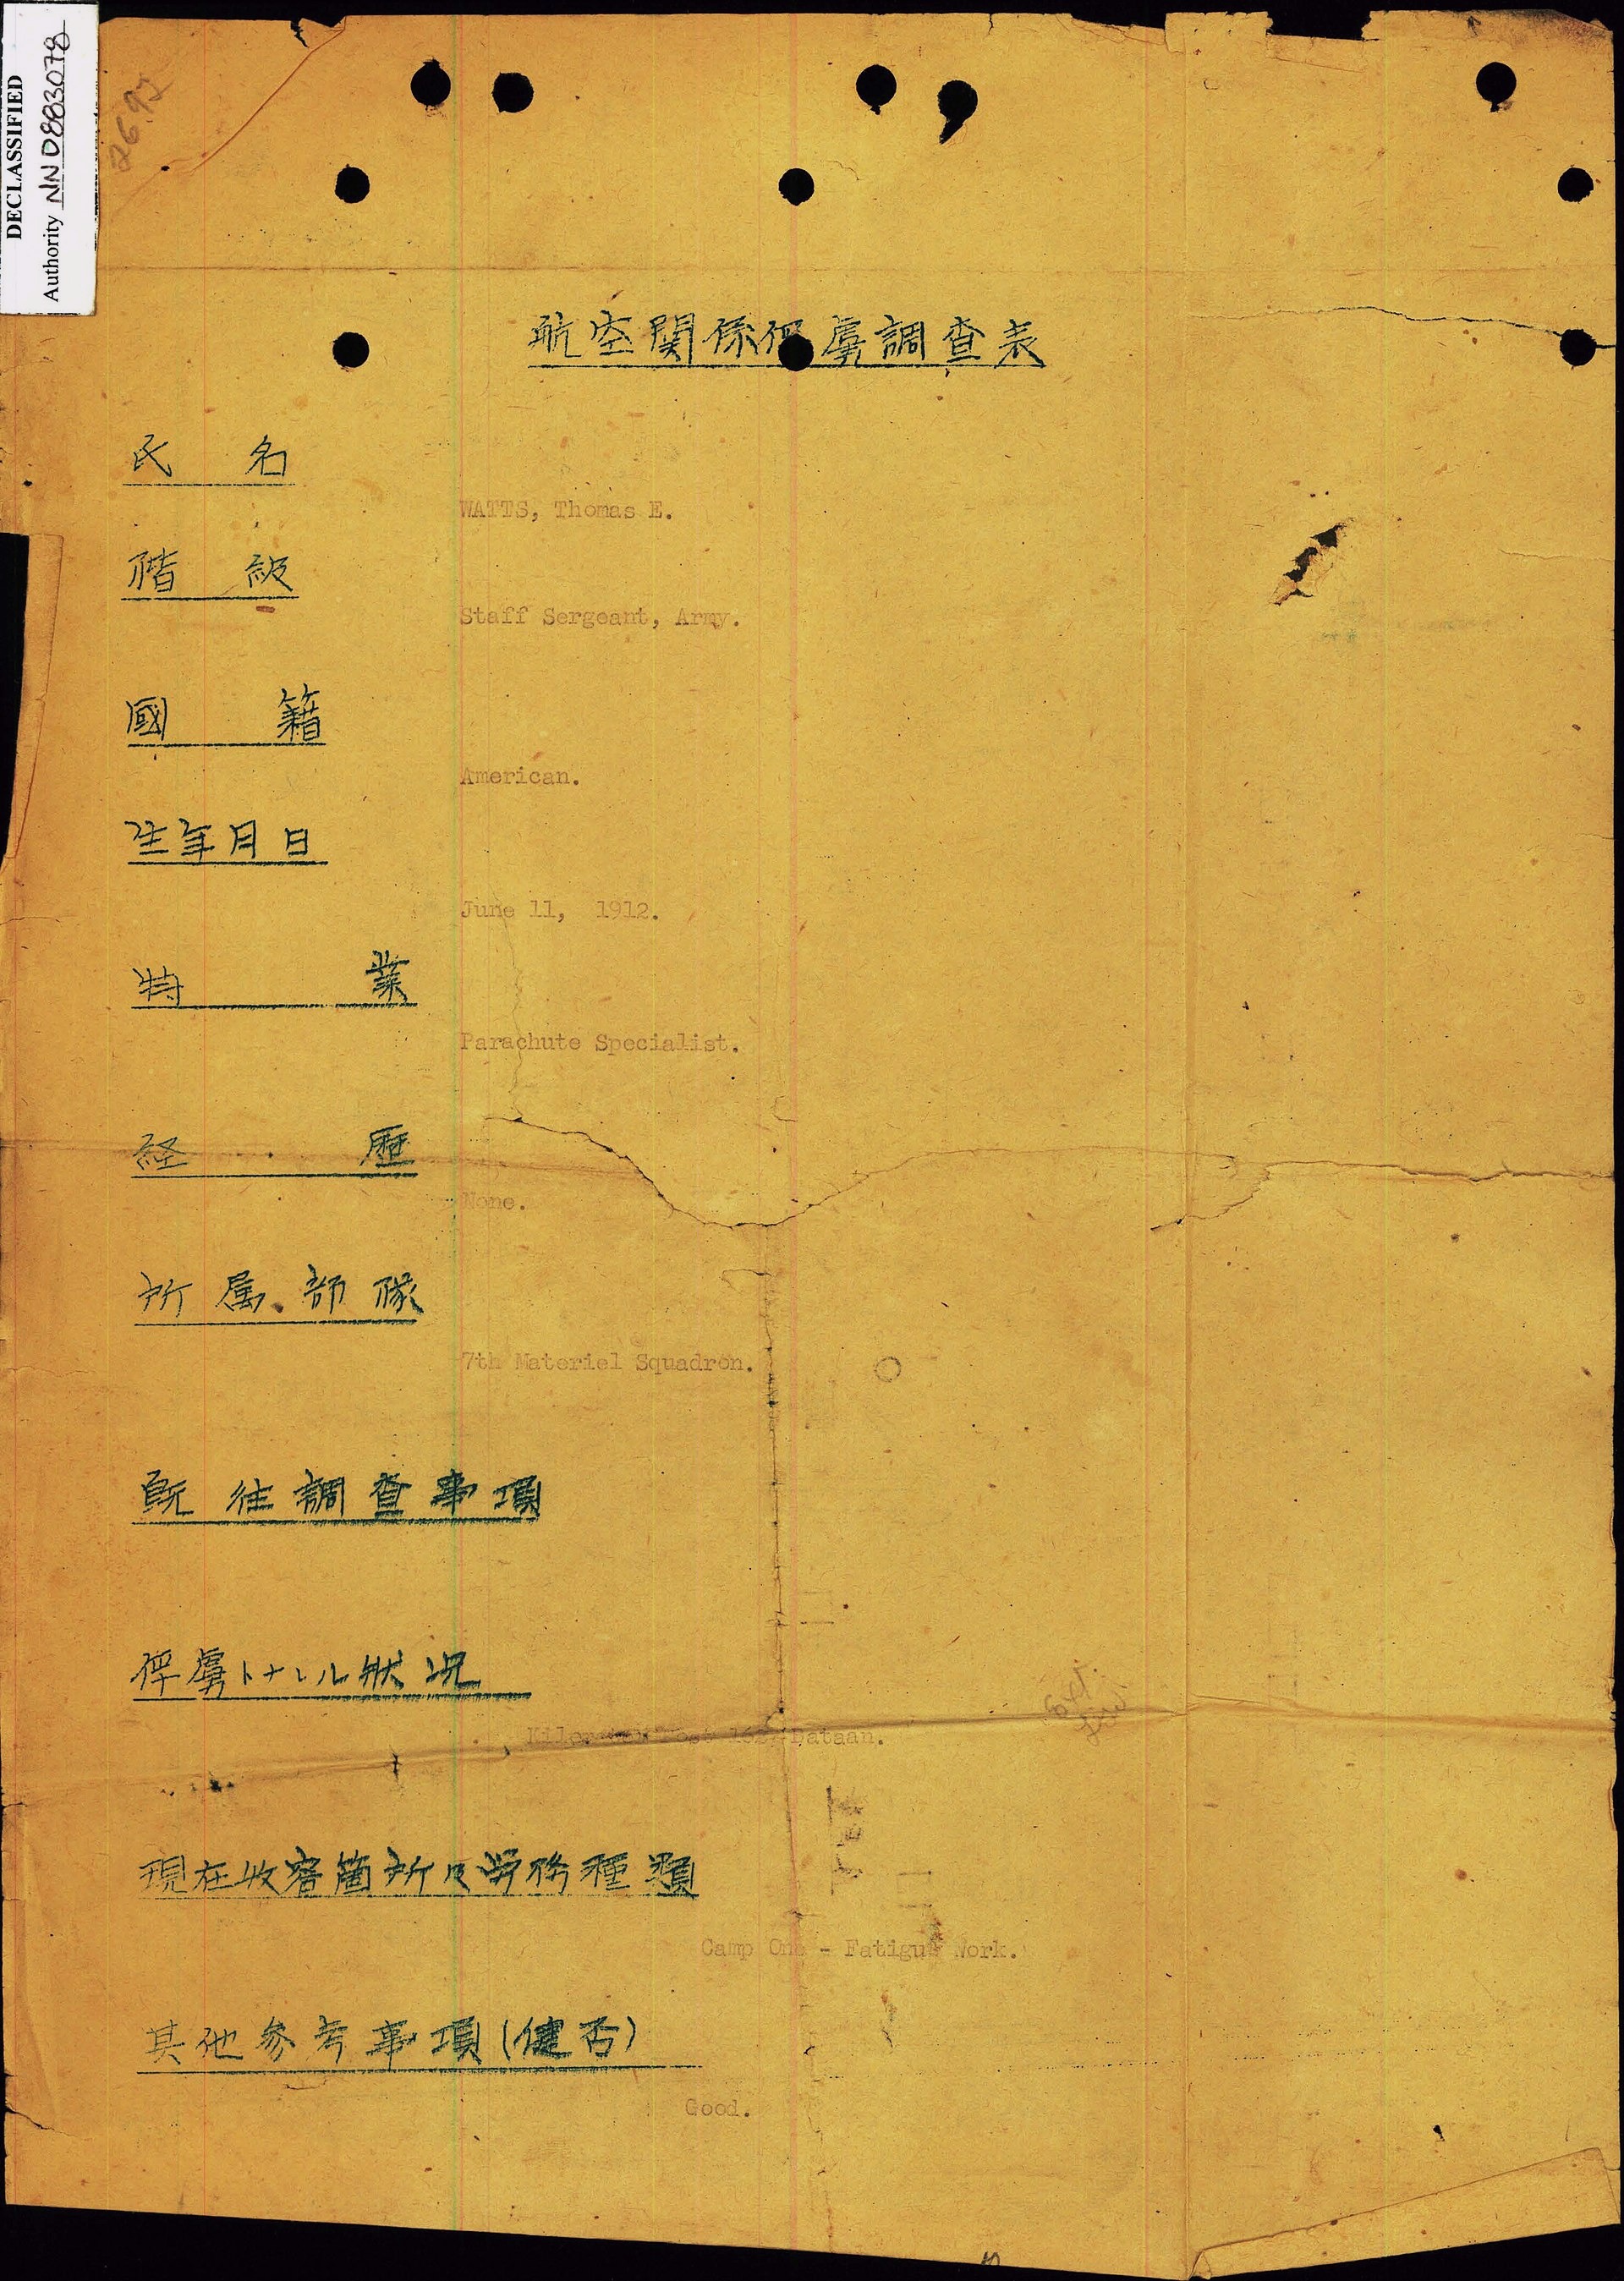 DECLASSIFIED
Authority NND883078
航空関係俘虜調査表
氏名
WATTS, Thomas E.
階級
Staff Sergeant, Army.
國籍
American.
生年月日
June 11, 1912.
特業
Parachute Specialist.
経歴
None.
所属部隊
7th Materiel Squadron.
既往調査事項
俘虜トナレル状況
Kilometer Post 162, Bataan.
現在收容箇所及労務種類
Camp One - Fatigue Work.
其他参考事項(健否)
Good.